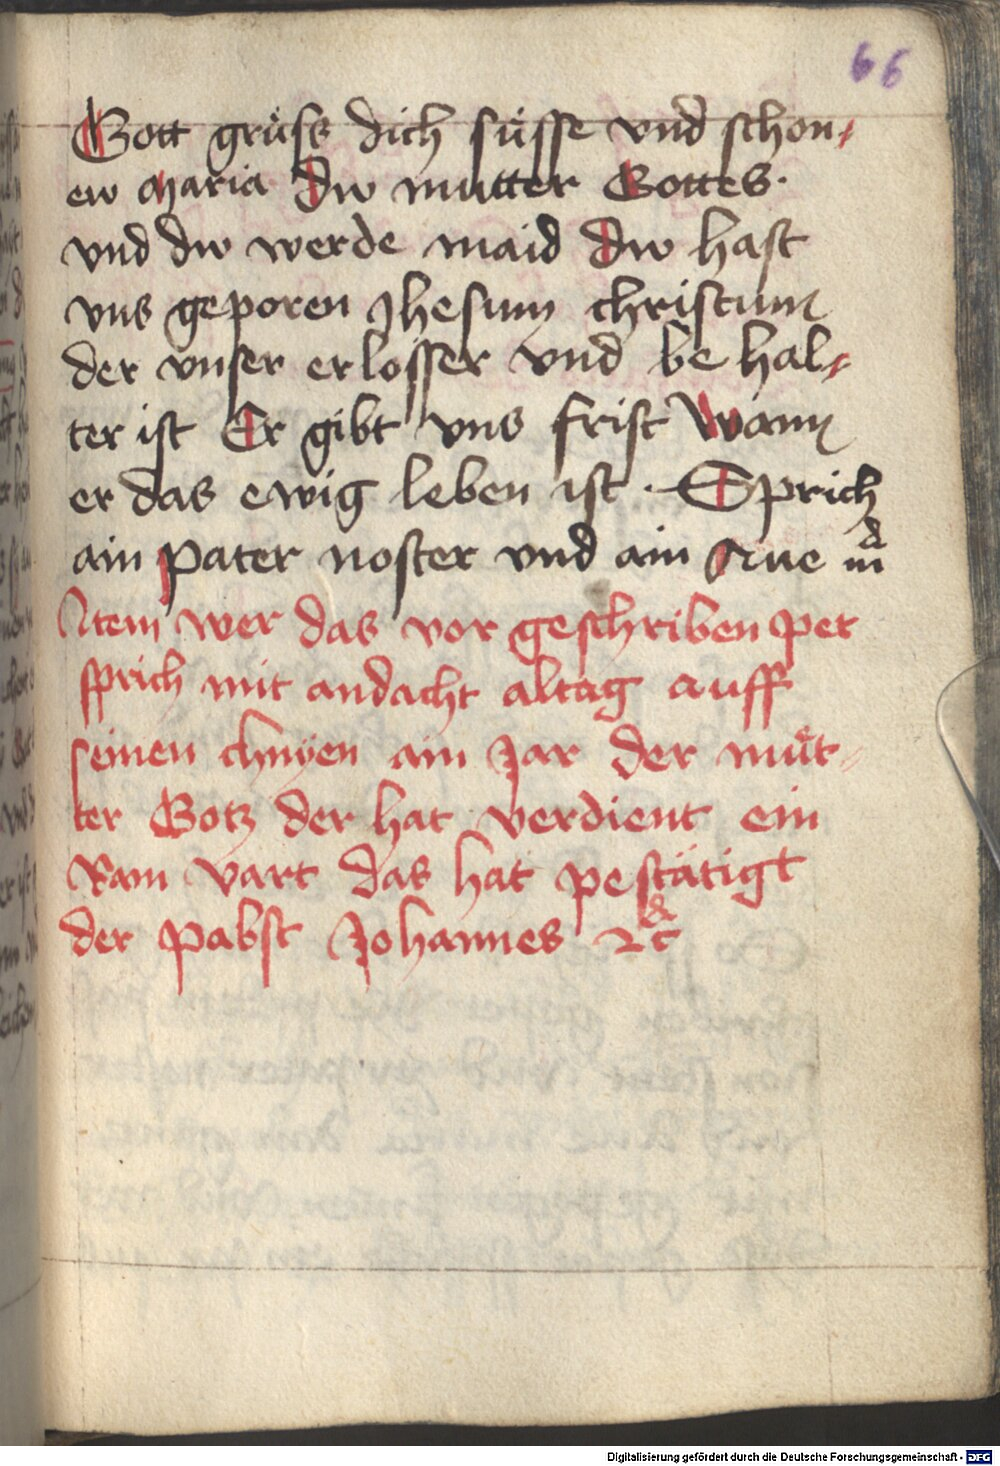 66
Gott grüss dich süsse vnd schon-
ew Maria Dw mutter Gottes.
vnd dw werde maid Dw hast
vns geporen Jhesum christum
der vnser erlosser vnd be hal-
ter ist Er gibt vns frist Wann
er das ewig leben ist. Sprich
ain pater noster vnd ain Aue mᵃ
Item wer das vor geschriben pet
sprich mit andacht altag auff
seinen chnyen ain Jar der müt-
ter Gotz der hat verdient ein
Ram vart das hat pestätigt
der Pabst Johannes ꝛc
Digitalisierung gefördert durch die Deutsche Forschungsgemeinschaft - DFG